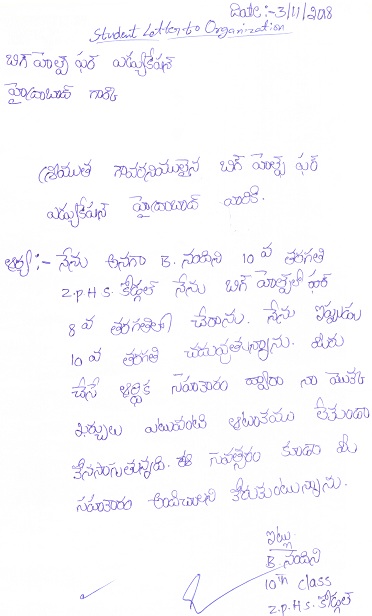 Date:-3/11/2018
Student Letter to Organization
బిగ్ హెల్ప్ ఫర్ ఎడ్యుకేషన్
హైదరాబాద్ గారికి
శ్రీయుత గౌరవనీయులైన బిగ్ హెల్ప్ ఫర్
ఎడ్యుకేషన్ హైదరాబాద్ వారికి.
ఆర్య:- నేను అనగా B. నందిని 10 వ తరగతి
Z.P.H S. నేను బిగ్ హెల్ప్‌లో ఫర్
8 వ తరగతిలో చేరాను. నేను ఇప్పుడు
10 వ తరగతి చదువుతున్నాను. మీరు
చేసే ఆర్థిక సహకారం ద్వారా నా యొక్క
ఖర్చులు ఎటువంటి ఆటంకము లేకుండా
కొనసాగుతున్నది. ఈ సంవత్సరం కూడా మీ
సహకారం అందించాలని కోరుకుంటున్నాను.
ఇట్లు
B. నందిని
10th class
Z.P.H.S.